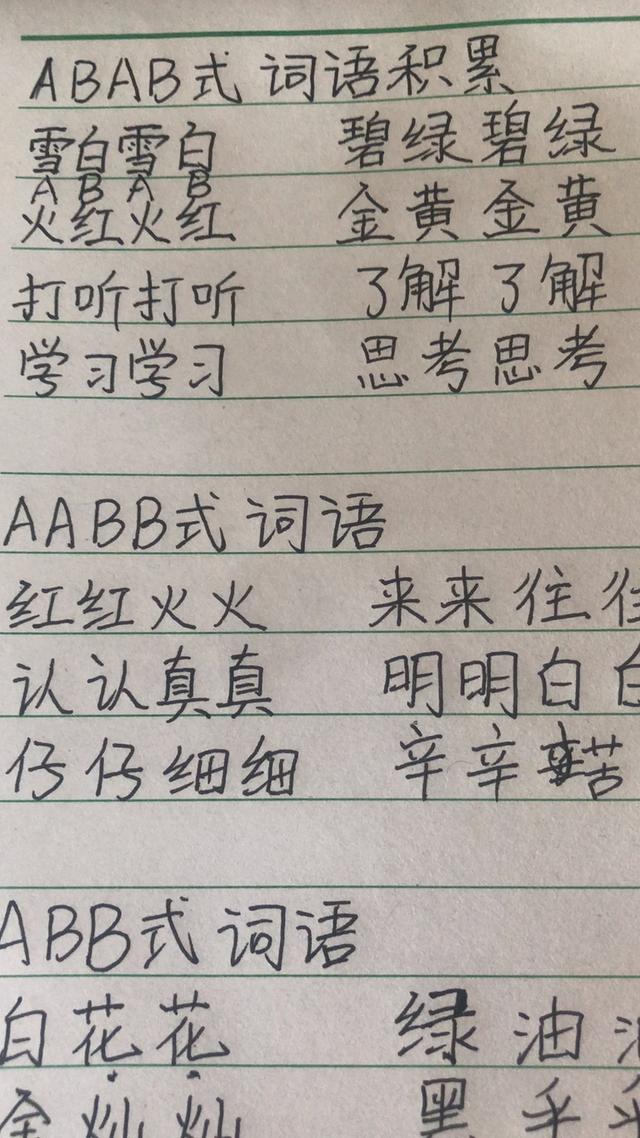 ABAB式 词语积累
雪白雪白 碧绿碧绿
A B A B
火红火红 金黄金黄
打听打听 了解了解
学习学习 思考思考
AABB式 词语
红红火火 来来往往
认认真真 明明白白
仔仔细细 辛辛苦
ABB式 词语
白花花 绿油
金灿灿 黑乎乎